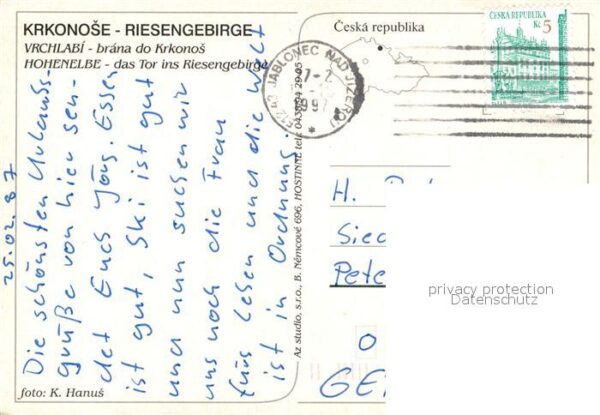 KRKONOŠE - RIESENGEBIRGE
VRCHLABÍ - brána do Krkonoš
HOHENELBE - das Tor ins Riesengebirge
25.02.97
Die schönsten Urlaubs-
grüße von hier sen-
det Euch Jörg. Essen
ist gut, Ski ist gut
und nun suchen wir
uns noch die Frau
fürs Leben und die Welt
ist in Ordnung.
foto: K. Hanuš
Az studio, s.r.o., B. Němcové 696, HOSTINNÉ tel. 0438/94 29 05
Česká republika
JABLONEC NAD JIZEROU
1997
ČESKÁ REPUBLIKA
Kč 5
H.
Sied
Pete
O
GE
privacy protection
Datenschutz